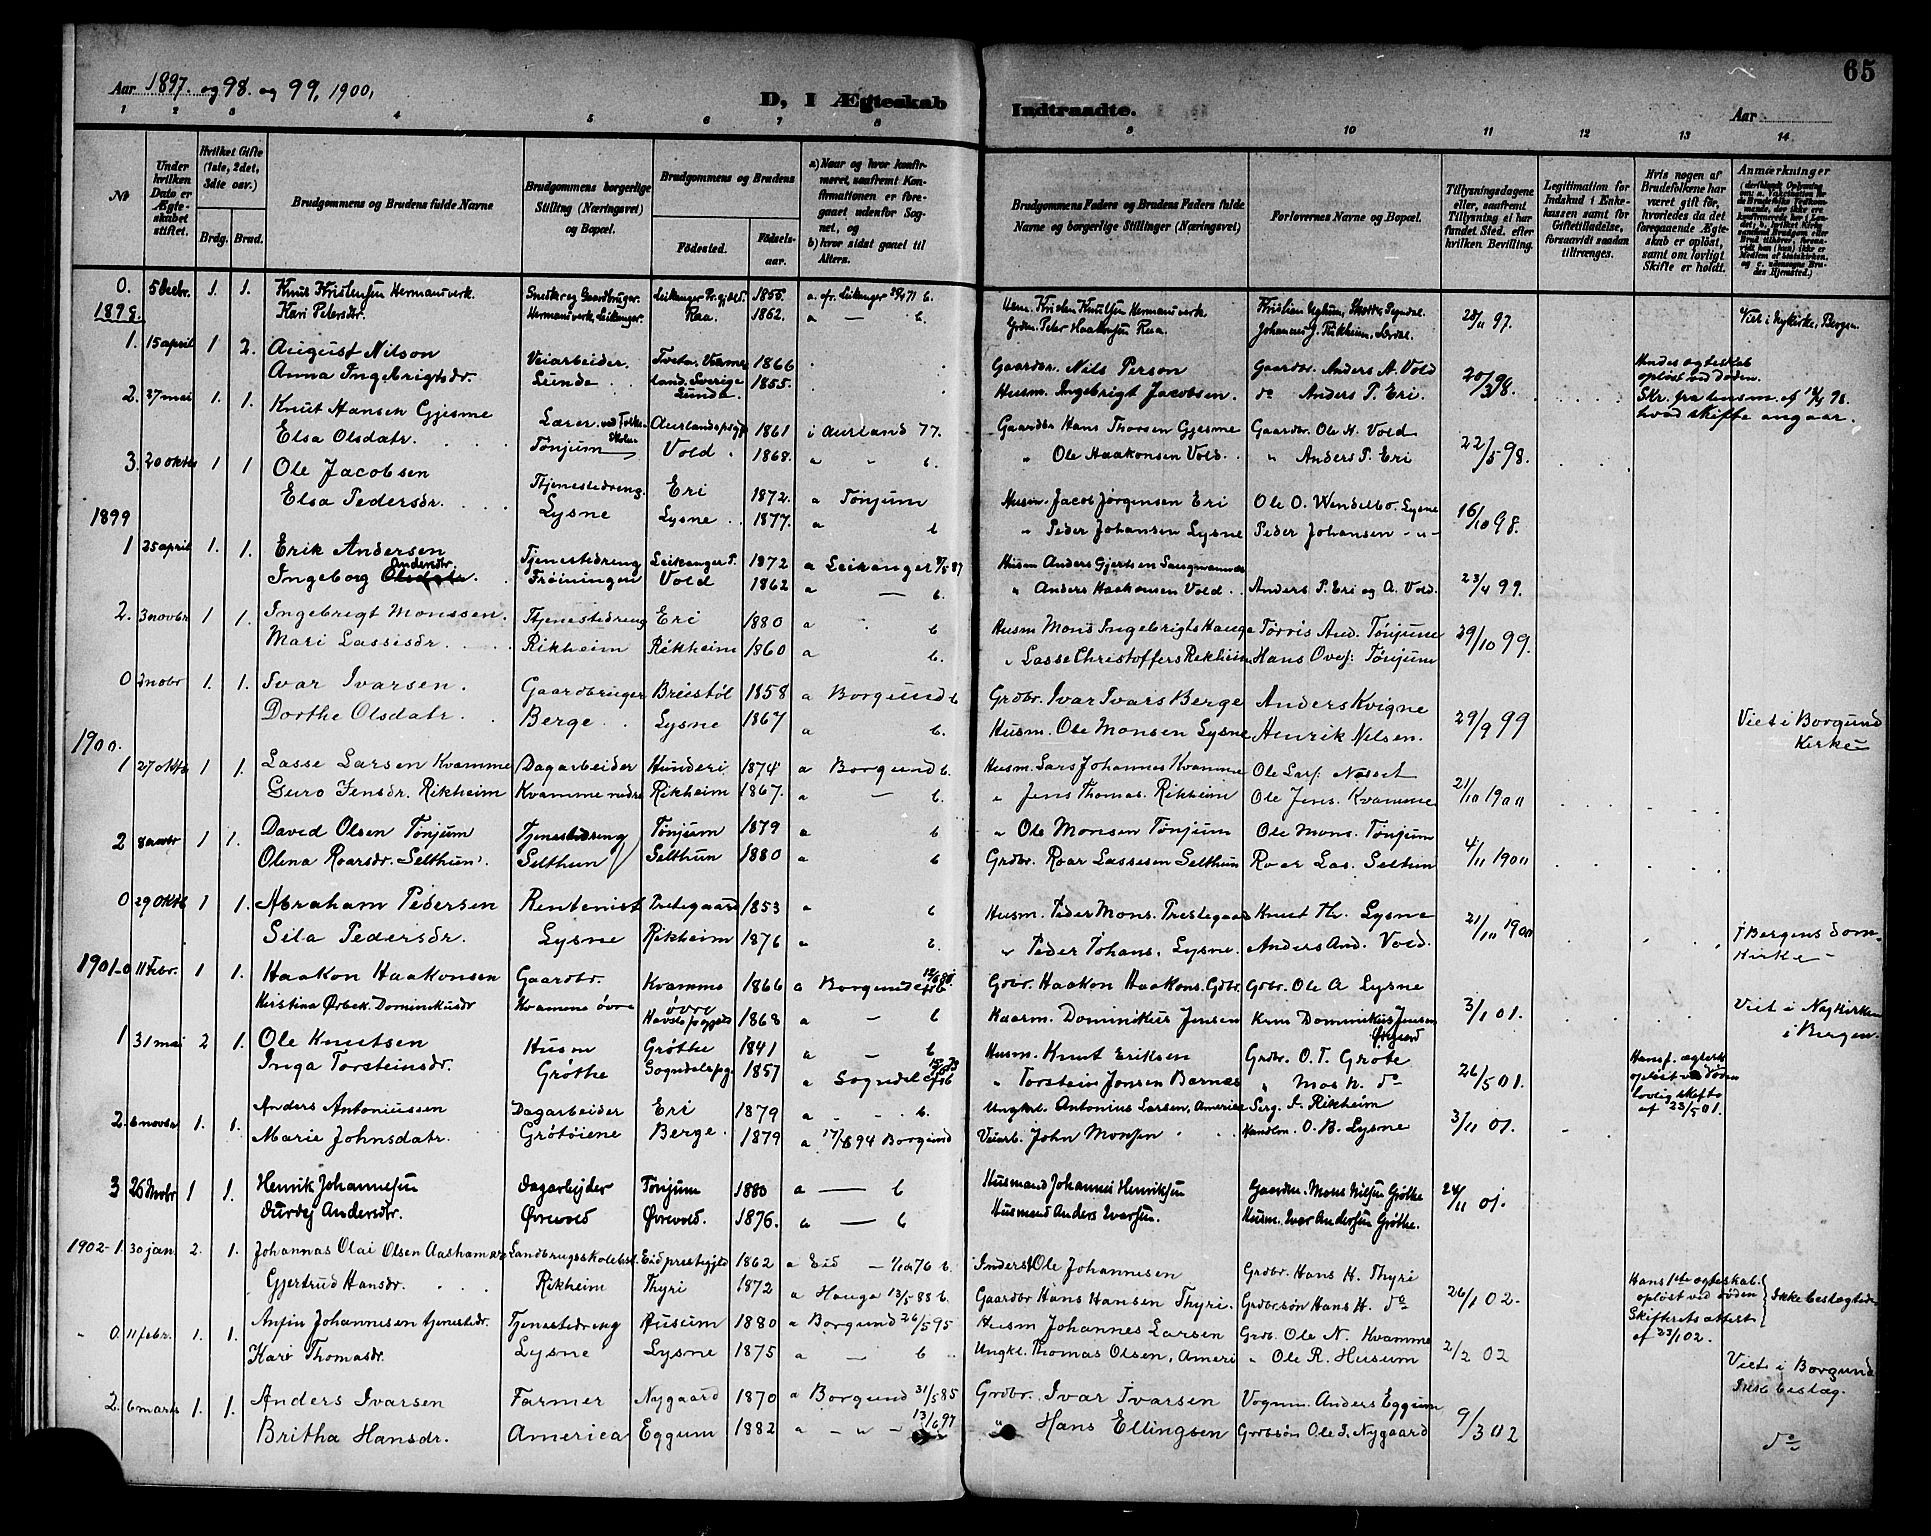 65
Aar 1897. og 98. og 99, 1900,
D, I Ægteskab Indtraadte. Aar
1 2 3 4 5 6 7 8 9 10 11 12 13 14
№
Under hvilken Dato er Ægteskabet stiftet.
Hvilket Gifte (1ste, 2det, 3die osv.)
Brdg. Brud.
Brudgommens og Brudens fulde Navne
Brudgommens borgerlige Stilling (Næringsvei) og Bopæl.
Brudgommens og Brudens
Fødested. Fødselsaar.
a) Naar og hvor konfirmeret, saafremt Konfirmationen er foregaaet udenfor Sognet, og
b) hvor sidst gaaet til Alters.
Brudgommens Faders og Brudens Faders fulde Navne og borgerlige Stillinger (Næringsvei)
Forlovernes Navne og Bopæl.
Tillysningsdagene eller, saafremt Tillysning ei har fundet Sted, efter hvilken Bevilling.
Legitimation for Indskud i Enkekassen samt for Giftetilladelse, forsaavidt saadan tiltrænges.
Hvis nogen af Brudefolkene har været gift før, hvorledes da det foregaaende Ægteskab er opløst, samt om lovligt Skifte er holdt.
Anmærkninger
0. 5 Decbr. 1. 1. Knut Kristensen Hermansverk. Snedker og Gaardbruger. Leikanger Pr.gjeld. 1855. a. fr. Leikanger 71 b. Kristen Knutsen Hermansverk Kristian Ughum, Sogndal 28/11 97. Viet i Nykirke, Bergen.
Kari Petersdr. Hermansverk, Leikanger. Raa. 1862. a — b. Grdm. Peter Haakonsen Raa Johannes J. Rikheim, Lærdal.
1898.
1. 15 april 1 2. August Nilson Veiarbeider Tveta, Verme- 1866 Gaardbr. Nils Person Gaardbr. Anders A. Vold 20/3 98. Hendes ægteskab opløst ved døden.
Anna Ingebrigtsdr. Lunde land. Sverige Lunde. 1855. Husm. Ingebrigt Jacobsen. do Anders P. Eri. Skr. fra lensm. af 98. hvad skifte angaar.
2. 27 mai 1. 1. Knut Hansen Gjesme Lærer ved Folkeskolen Aurlandspgj. 1861 i Aurland 77. Gaardbr Hans Thorsen Gjesme Gaardbr. Ole H. Vold 22/5 98.
Elsa Olsdatr. Tønjum Vold. 1868. a - b. " Ole Haakonsen Vold. " Anders P. Eri
3. 20 oktbr 1 1 Ole Jacobsen Tjenestedreng. Eri 1872. a Tønjum Husm. Jacob Jørgensen Eri Ole O. Wendelbo. Lysne 16/10 98.
Elsa Pedersdr. Lysne Lysne 1877. a b " Peder Johansen Lysne Peder Johansen - " -
1899
1 25 april 1. 1. Erik Andersen Tjenestedreng Leikanger P. 1872 a Leikanger 87 Husm Anders Gjertsen 23/4 99.
Ingeborg Olsdatr. Andersdr. Frøiningen Vold 1862 a — b. " Anders Haakonsen Vold. Anders P. Eri og A. Vold.
2. 3 novbr 1 1. Ingebrigt Monssen. Tjenestedreng Eri 1880 a b Husm Mons Ingebrigts Hauge Tørris And. Tønjum 29/10 99.
Mari Lassesdr. Rikheim Rikheim 1860 a b. " Lasse Christoffers Rikheim Hans Ovef. Tønjum
0 1. 1. Ivar Ivarsen. Gaardbruger Breistøl 1858 a Borgund b Grdbr. Ivar Ivars Berge Anders Kvigne 29/9 99 Viet i Borgund Kirke
Dorthe Olsdatr. Berge. Lysne 1867 a b. Husm. Ole Monsen Lysne Henrik Nelsen.
1900.
1 27 oktb 1 1. Lasse Larsen Kvamme Dagarbeider Hunderi 1874 a Borgund b. Husm. Lars Johannes Kvamme Ole Lars. 21/10 1900
Guro Jensdr. Rikheim Kvamme nedre Rikheim 1867. a — b. " Jens Thomas. Rikheim Ole Jens. Kvamme
2 8 novbr 1 1. David Olsen Tønjum Tjenestedreng Tønjum 1879 a b " Ole Monsen Tønjum Ole Mons. Tønjum 4/11 1900
Olena Roarsdr. Selthun. Selthun Selthun 1880 a b Grdbr. Roar Lassesen Selthun Roar Las. Seltun
0 29 Oktb 1 1. Abraham Pedersen Rentenist Prestegaard 1853 a b Husm. Peder Mons. Prestegaard Knut Th. Lysne 21/10 1900 I Bergens Dom-
Sila Pedersdr. Lysne Rikheim 1876 a b. " Peder Johans. Lysne. Anders And. Vold. Kirke -
1901. 0 11 Febr. 1 1. Haakon Haakonsen Gaardbr. Kvamme øvre 1866 a Borgund Grdbr. Haakon Haakons. Grdbr. Grdbr. Ole A Lysne 3/1 01. Viet i Nykirken i Bergen.
Kristina Ørbek. Dominikusdr Kvamme øvre 1868 a — b Dominikus Jensen Dominikus Jensen
1 31 mai 2 1. Ole Knutsen Husm Grøthe 1841 a — b Husm. Knut Eriksen Grdbr. O. T. Grøte 26/5 01. Hans f. ægtesk opløst ved døden lovlig skifte af 23/5 01.
Inga Torsteinsdr. Grøthe Sogndalspg. 1857 a Sogndal " Torstein Jonsen Barnes " Mos N. do
2. 6 novbr 1. 1. Anders Antoniussen Dagarbeider Eri 1879 a - - b. Ungkl. Antonius Larsen, Amerika Serg. J. Rikheim 3/11 01.
Marie Johnsdatr. Grøtøiene Berge. 1879 a 94 Borgund Veiarb. John Monsen Handlm. O. B. Lysne
3 26 Novbr 1 1. Henrik Johannesen Dagarbejder Tønjum 1880 a — b Husmand Johannes Henriksen Gaardbr. Mons Nilsen Grøthe 24/11 01.
Durdej Andersdtr. Øvrevold Øvrevold. 1876. a — b Husmand Anders Ivarsen. Husm. Ivar Andersen Grøthe.
1902- 1. 30 jan 2. 1. Johannas Olai Olsen Aashamar Landbrugsskolebest. Eid prestegjeld 1862 a Eid — 1/10 76 b. Inderst Ole Johannesen Grdbr. Hans H. Thyri 26/1 02. Hans 1ste ægteskab opløst ved døden Skifterets attest af 23/1 02. Ikke beslægtede
Gjertrud Hansdr. Rikheim Thyri 1872 a Hauge 13/5 88 b. Gaardbr Hans Hansen Thyri. Grdbrsøn Hans H. do
" 0. 11 febr. 1. 1. Anfin Johannesen tjenestedr. Tjenestedreng Husum 1880 a Borgund 26/5 95 Husm Johannes Larsen Grdb. Ole N. Kvamme 2/2 02 Viet i Borgund Ikke beslæg.
Kari Thomasdr. Lysne Lysne 1875 a — b Ungkl. Thomas Olsen, Ameri " Ole R. Husum
2. 6 marts 1. 1. Anders Ivarsen Farmer Nygaard 1870 a Borgund 31/5 85 Grdbr. Ivar Ivarsen Vognm. Anders Eggum 9/3 02
Britha Hansdr. America Eggum 1882 a — " — 13/6 97 " Hans Ellingsen Grdbsøn Ole I. Nygaard do